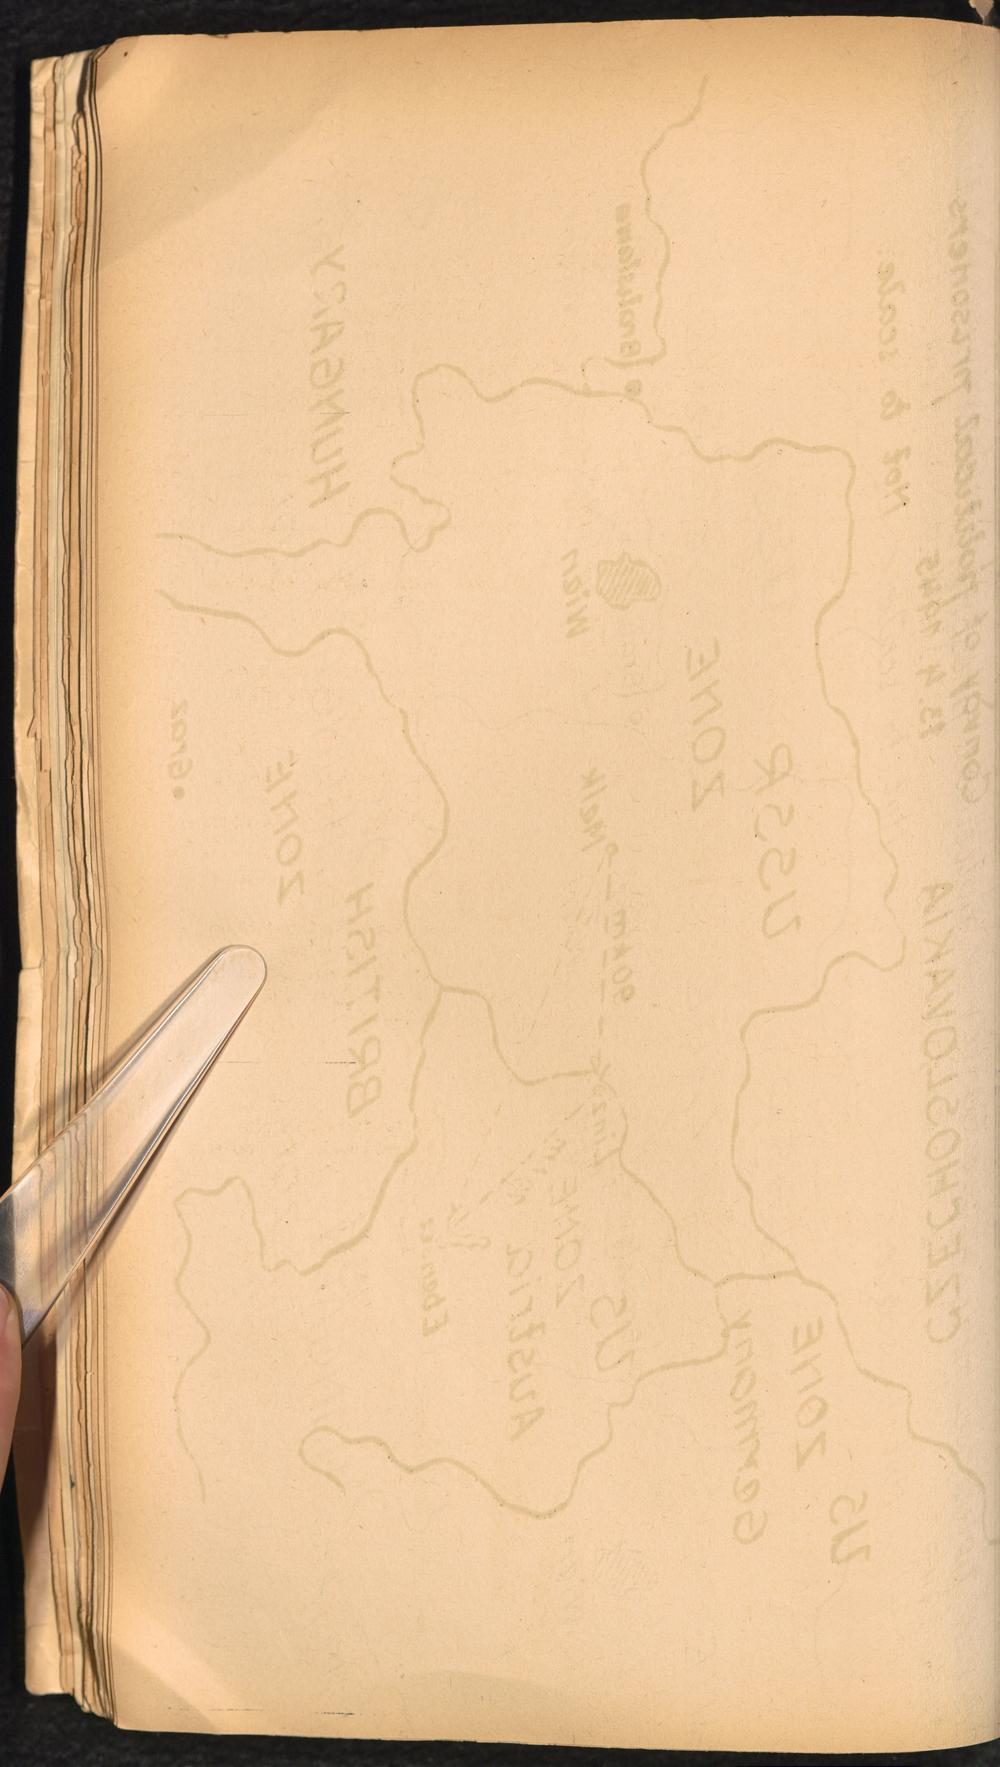 Convoy of political prisoners
13.4.1945
Not to scale
CZECHOSLOVAKIA
US
ZONE
Germany
USSR
ZONE
Bratislava
Wien
Melk
90 km
Linz
US
ZONE
Austria
Ebensee
HUNGARY
BRITISH
ZONE
Graz